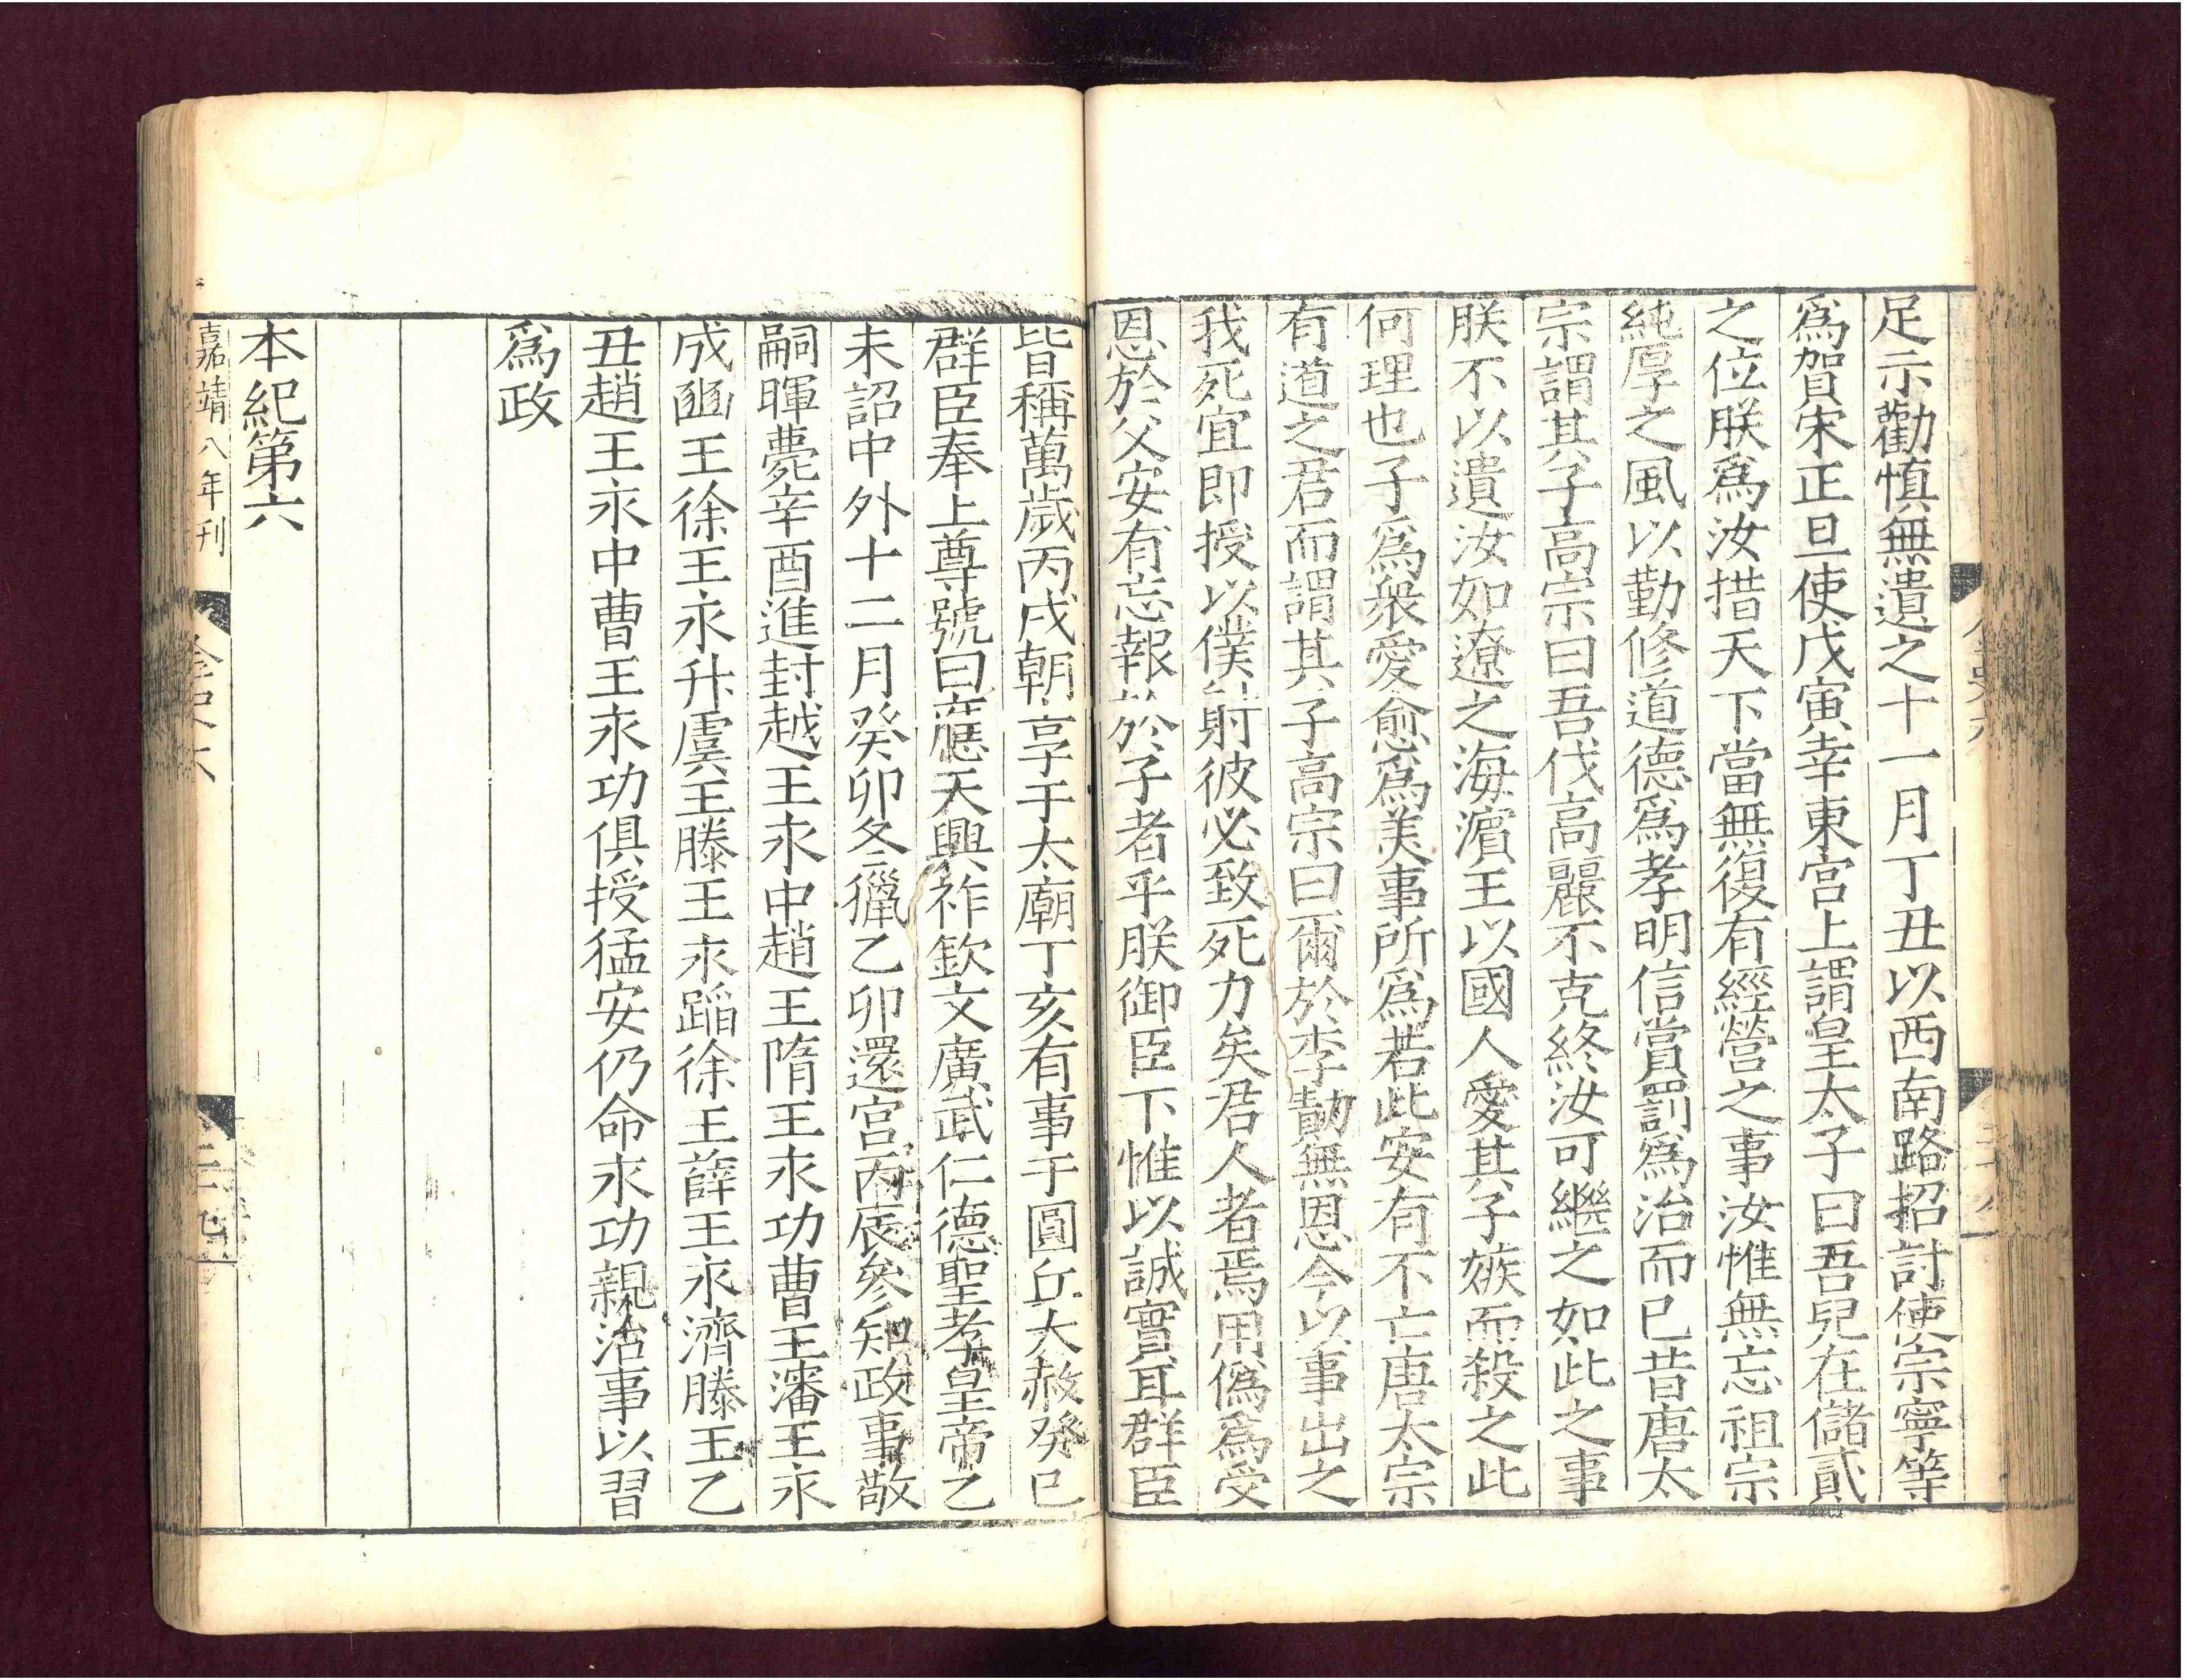 足示勸慎無遺之十一月丁丑以西南路招討使宗寧等
爲賀宋正旦使戊寅幸東宮上謂皇太子曰吾兒在儲貳
之位朕爲汝措天下當無復有經營之事汝惟無忘祖宗
純厚之風以勤修道德爲孝明信賞罰爲治而已昔唐太
宗謂其子高宗曰吾伐高麗不克終汝可繼之如此之事
朕不以遺汝如遼之海濵王以國人愛其子嫉而殺之此
何理也子爲衆愛愈爲美事所爲若此安有不亡唐太宗
有道之君而謂其子高宗曰爾於李勣無恩今以事出之
我死宜即授以僕射彼必致死力矣君人者焉用僞爲受
恩於父安有忘報於子者乎朕御臣下惟以誠實耳群臣
皆稱萬歲丙戌朝享于太廟丁亥有事于圓丘大赦癸巳
群臣奉上尊號曰應天興祚欽文廣武仁德聖孝皇帝乙
未詔中外十二月癸卯冬獵乙卯還宮丙辰參知政事敬
嗣暉薨辛酉進封越王永中趙王隋王永功曹王瀋王永
成豳王徐王永升虞王滕王永蹈徐王薛王永濟滕王乙
丑趙王永中曹王永功俱授猛安仍命永功親治事以習
爲政
本紀第六
嘉靖八年刊
金史六
二九